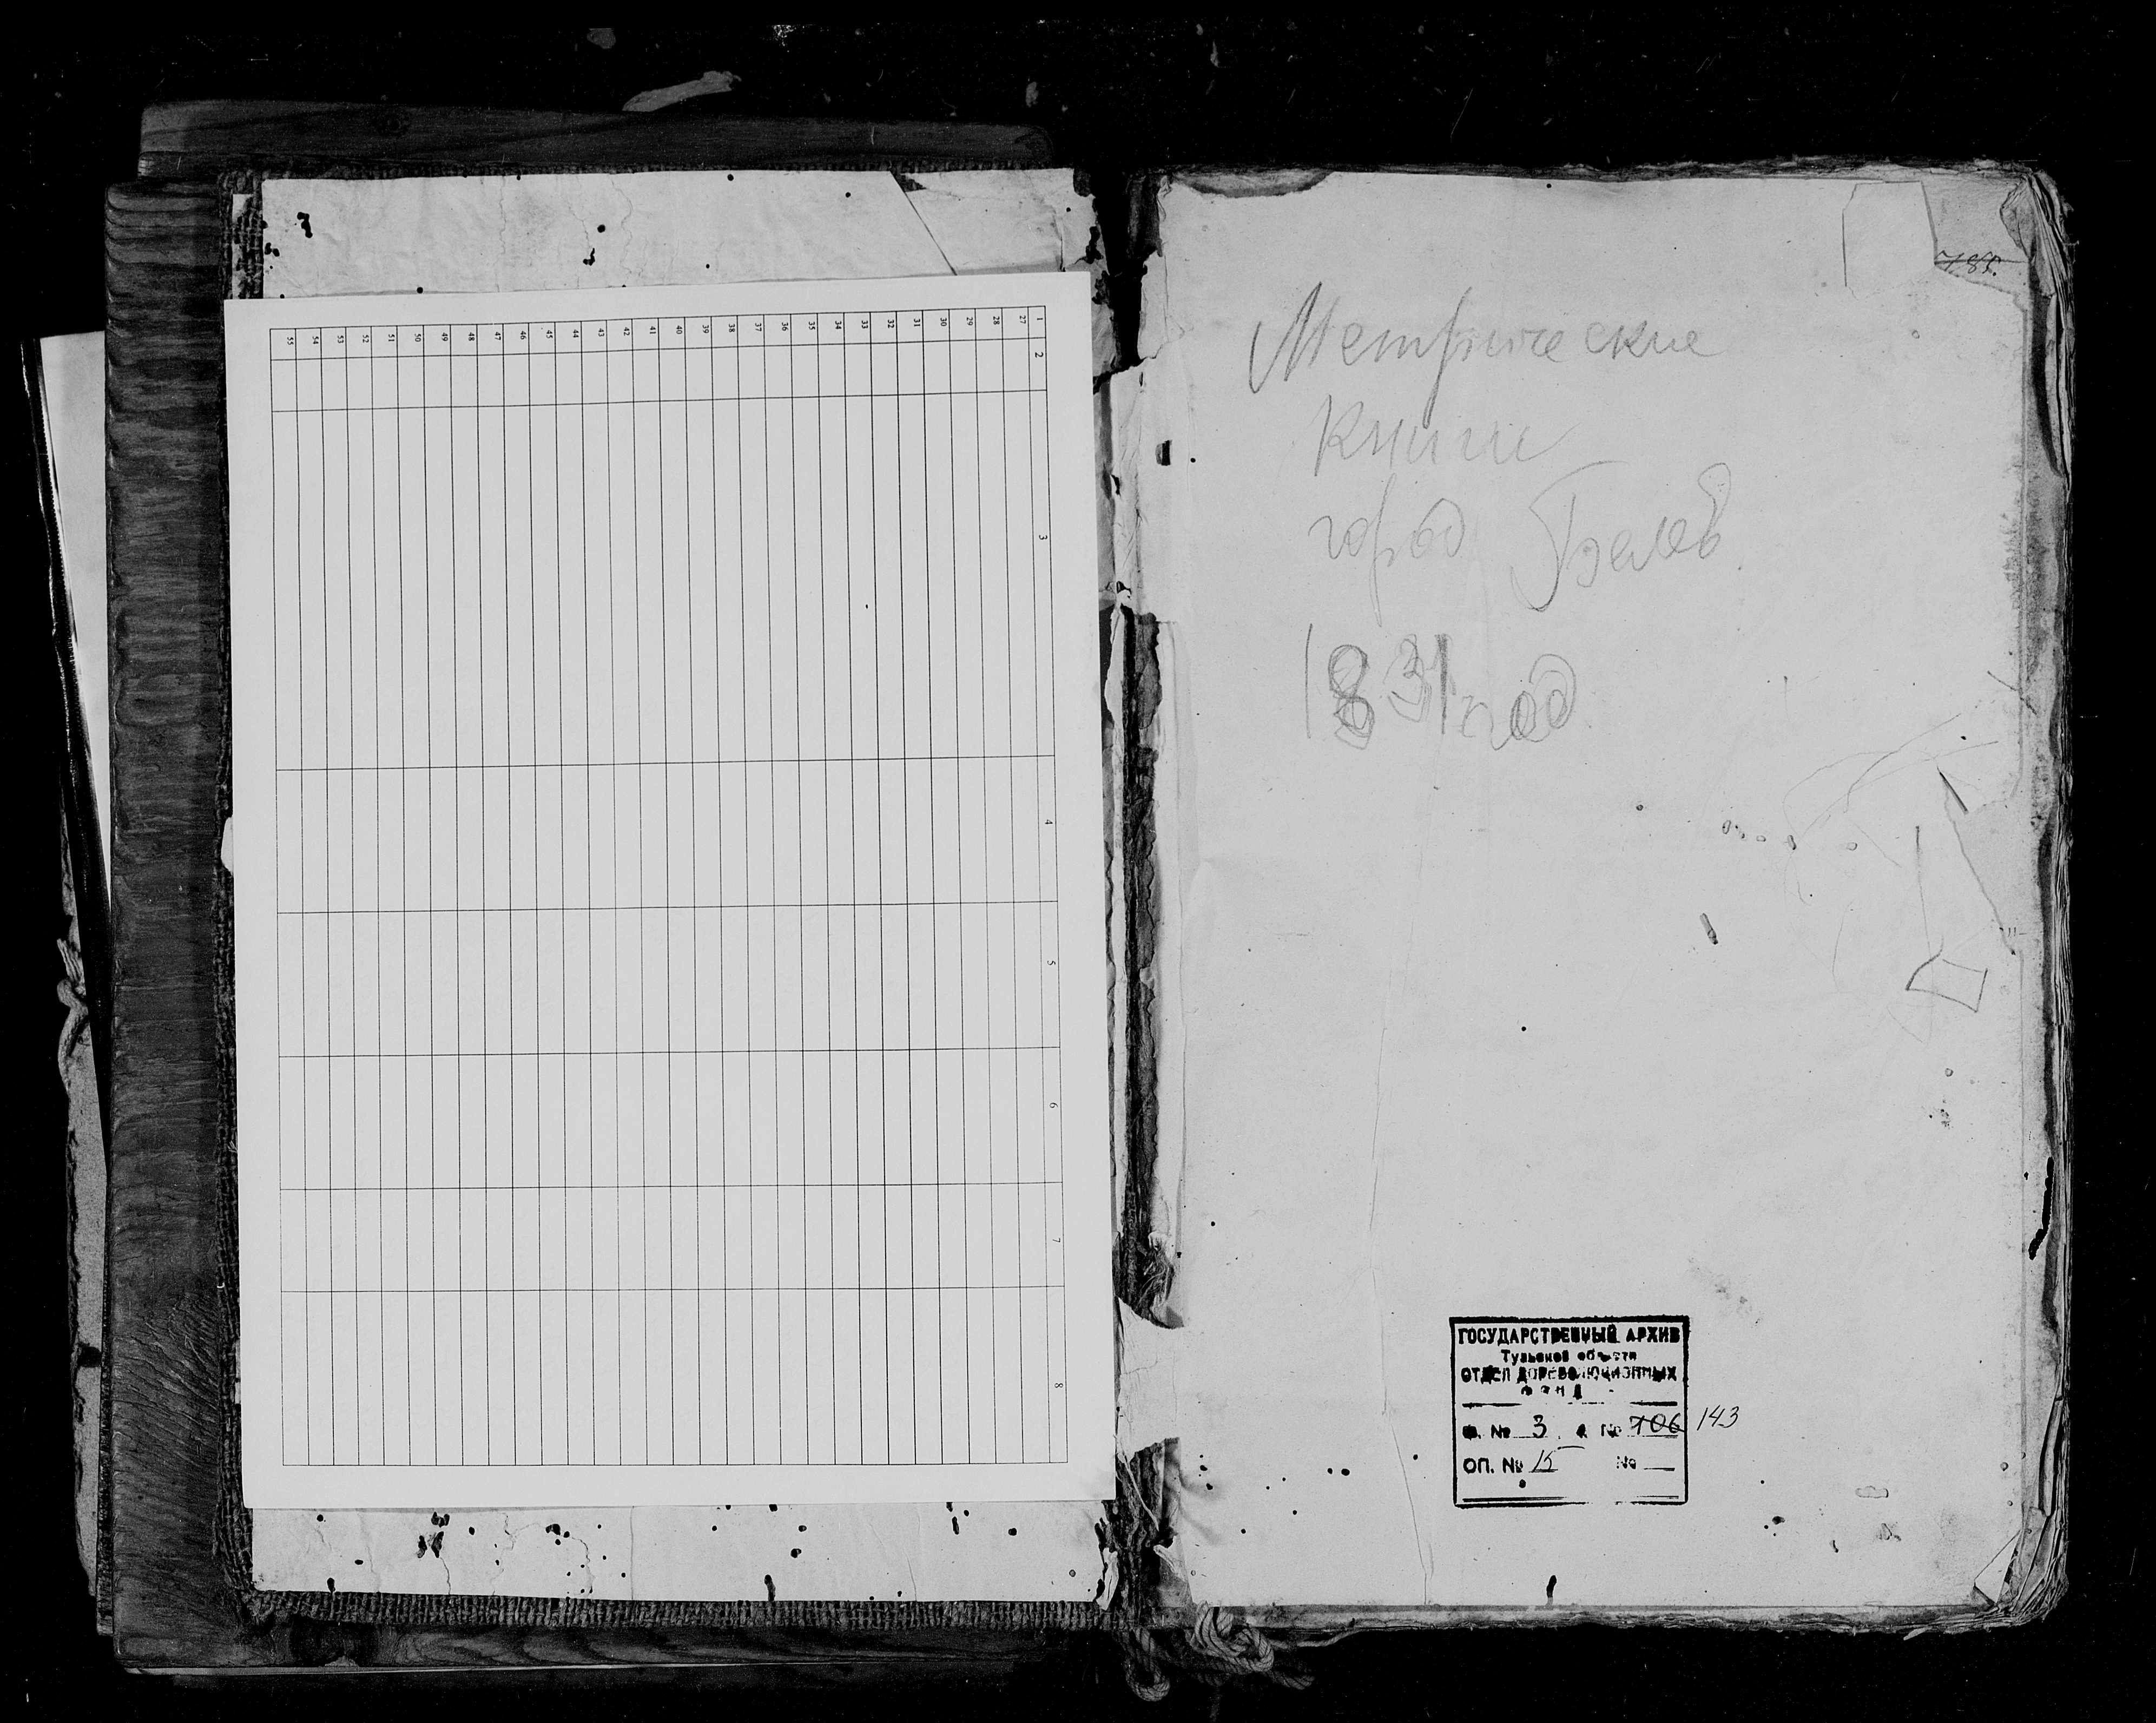 1 2 3 4 5 6 7 8
27
28
29
30
31
32
33
34
35
36
37
38
39
40
41
42
43
44
45
46
47
48
49
50
51
52
53
54
55
Метрические
Книги
город Белев
1831 год
ГОСУДАРСТВЕННЫЙ АРХИВ
Тульской области
ОТДЕЛ ДОРЕВОЛЮЦИОННЫХ
ФОНД
Ф. № 3 д. № 706 143
ОП. № 15 №